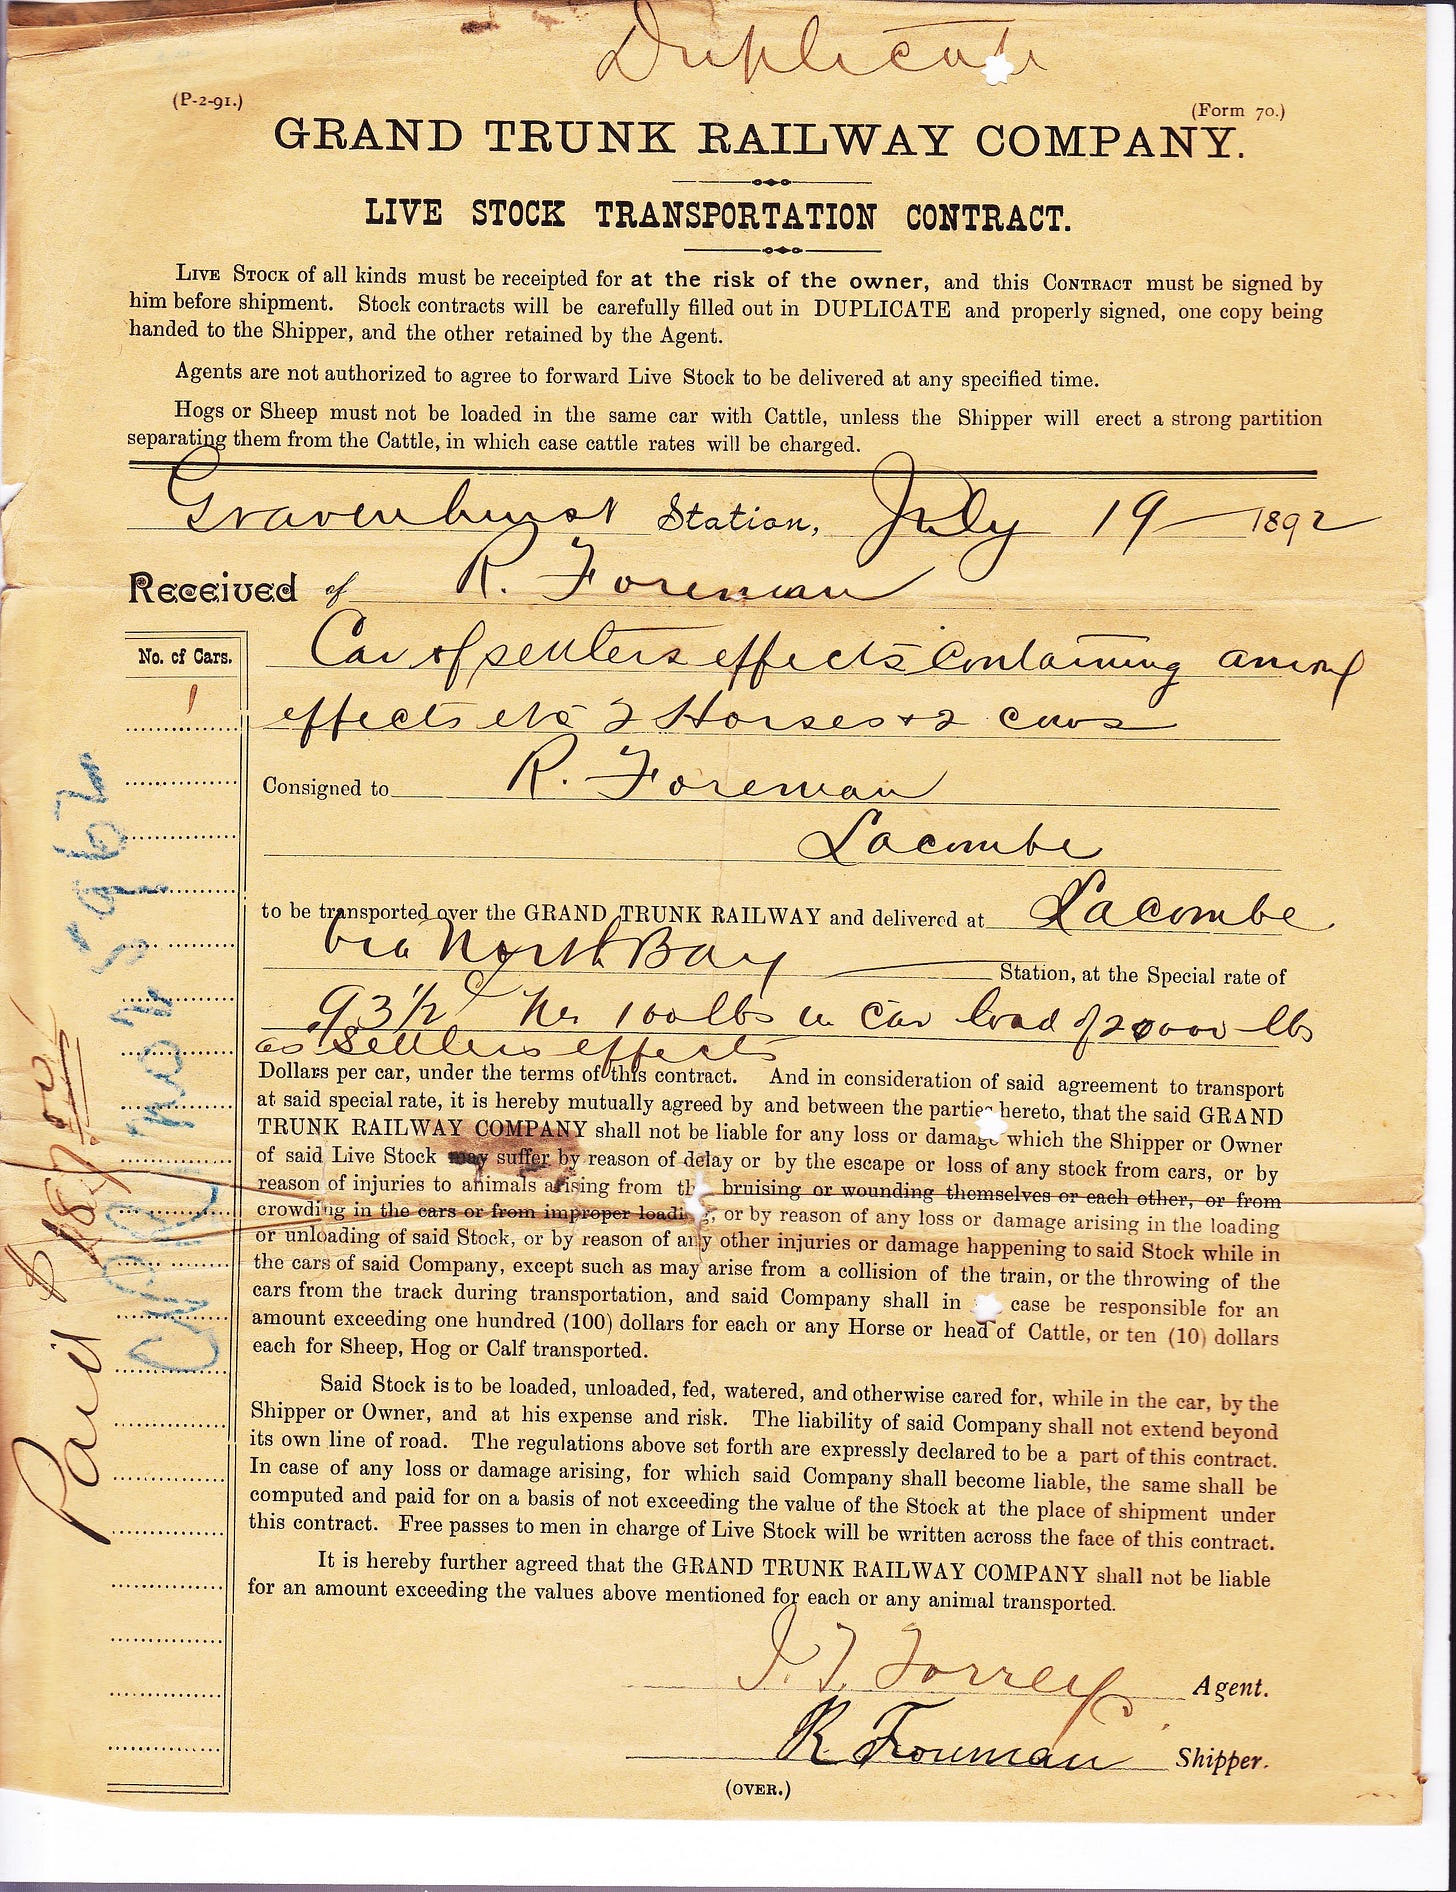 Duplicate
(P-2-91.)
(Form 70.)
GRAND TRUNK RAILWAY COMPANY.
LIVE STOCK TRANSPORTATION CONTRACT.
LIVE STOCK of all kinds must be receipted for at the risk of the owner, and this CONTRACT must be signed by
him before shipment. Stock contracts will be carefully filled out in DUPLICATE and properly signed, one copy being
handed to the Shipper, and the other retained by the Agent.
Agents are not authorized to agree to forward Live Stock to be delivered at any specified time.
Hogs or Sheep must not be loaded in the same car with Cattle, unless the Shipper will erect a strong partition
separating them from the Cattle, in which case cattle rates will be charged.
Gravenhurst Station, July 19 1892
Received of R. Foreman
No. of Cars.
1
Car of settlers effects containing among
effects 2 Horses + 2 cows
Consigned to R. Foreman
Lacombe
to be transported over the GRAND TRUNK RAILWAY and delivered at Lacombe
via North Bay Station, at the Special rate of
93 1/2 per 100 lbs in car load of 20000 lbs
as settlers effects
Dollars per car, under the terms of this contract. And in consideration of said agreement to transport
at said special rate, it is hereby mutually agreed by and between the parties hereto, that the said GRAND
TRUNK RAILWAY COMPANY shall not be liable for any loss or damage which the Shipper or Owner
of said Live Stock may suffer by reason of delay or by the escape or loss of any stock from cars, or by
reason of injuries to animals arising from the bruising or wounding themselves or each other, or from
crowding in the cars or from improper loading, or by reason of any loss or damage arising in the loading
or unloading of said Stock, or by reason of any other injuries or damage happening to said Stock while in
the cars of said Company, except such as may arise from a collision of the train, or the throwing of the
cars from the track during transportation, and said Company shall in case be responsible for an
amount exceeding one hundred (100) dollars for each or any Horse or head of Cattle, or ten (10) dollars
each for Sheep, Hog or Calf transported.
Said Stock is to be loaded, unloaded, fed, watered, and otherwise cared for, while in the car, by the
Shipper or Owner, and at his expense and risk. The liability of said Company shall not extend beyond
its own line of road. The regulations above set forth are expressly declared to be a part of this contract.
In case of any loss or damage arising, for which said Company shall become liable, the same shall be
computed and paid for on a basis of not exceeding the value of the Stock at the place of shipment under
this contract. Free passes to men in charge of Live Stock will be written across the face of this contract.
It is hereby further agreed that the GRAND TRUNK RAILWAY COMPANY shall not be liable
for an amount exceeding the values above mentioned for each or any animal transported.
Agent.
R Foreman Shipper.
(OVER.)
Paid $187.00